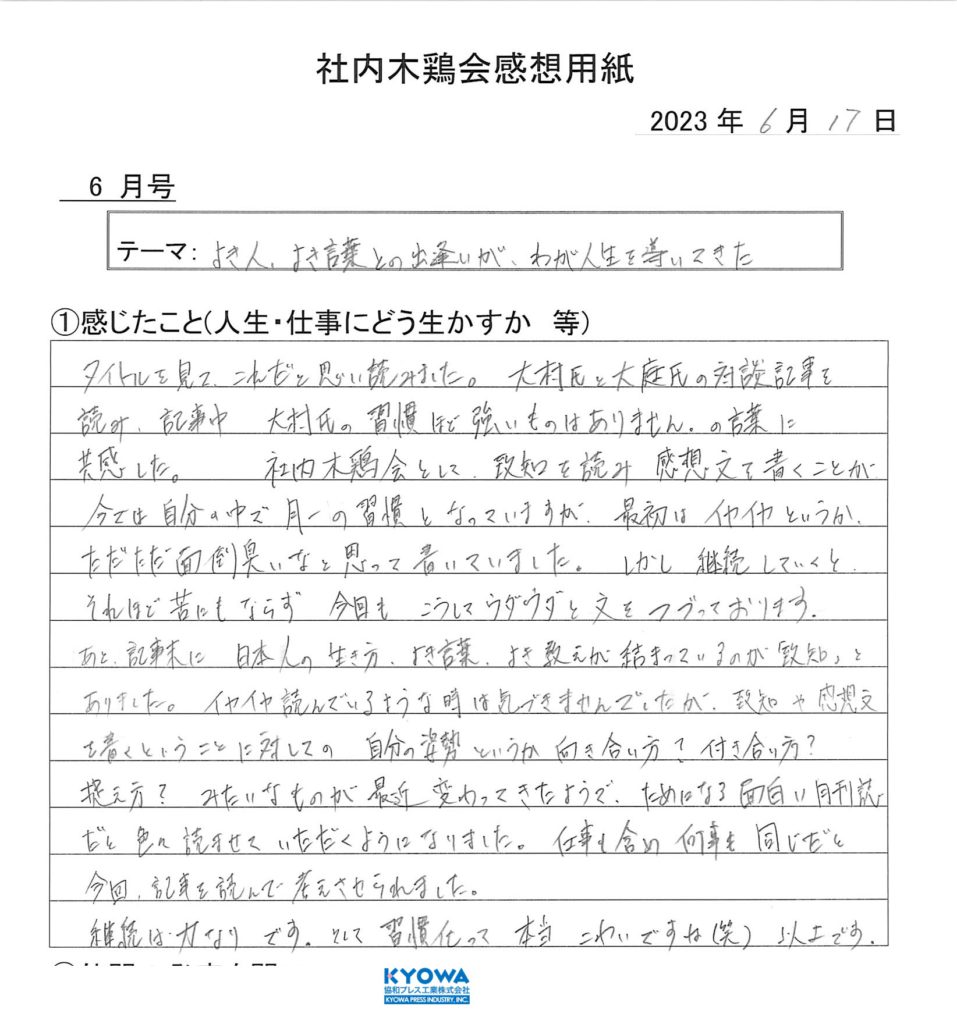 社内木鶏会感想用紙
2023 年 6 月 17 日
6 月号
テーマ: よき人、よき言葉との出逢いが、わが人生を導いてきた
①感じたこと(人生・仕事にどう生かすか 等)
タイトルを見て、これだと思い読みました。 大村氏と大庭氏の対談記事を
読み、記事中 大村氏の習慣ほど強いものはありません。の言葉に
共感した。 社内木鶏会として、致知を読み 感想文を書くことが
今では自分の中で月一の習慣となっていますが、最初はイヤイヤというか、
ただただ面倒臭いなと思って書いていました。 しかし継続していくと、
それほど苦にもならず 今回も こうしてウダウダと文をつづっております。
あと、記事末に 日本人の生き方、よき言葉、よき教えが詰まっているのが「致知」と
ありました。 イヤイヤ読んでいるような時は気づきませんでしたが、致知や感想文
を書くということに対しての 自分の姿勢というか 向き合い方？付き合い方？
捉え方？ みたいなものが最近変わってきたようで、ためになる面白い月刊誌
だと色々読ませていただくようになりました。 仕事も含め 何事も同じだと
今回、記事を読んで考えさせられました。
継続は力なりです。そして習慣化って本当こわいですね(笑) 以上です。
KYOWA
協和プレス工業株式会社
KYOWA PRESS INDUSTRY, INC.